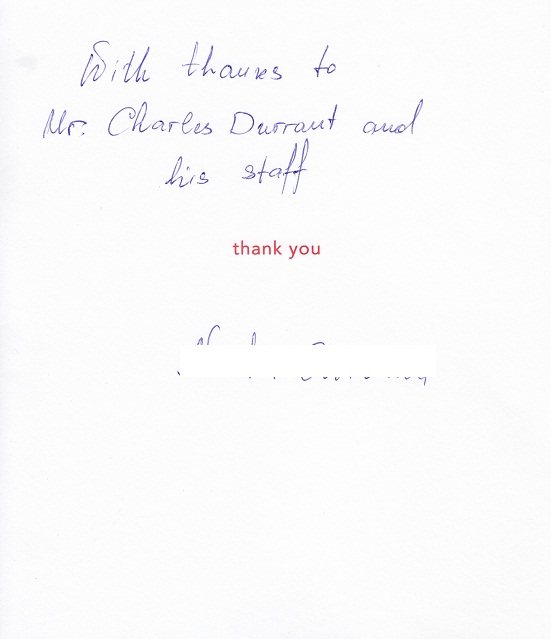 With thanks to
Mr. Charles Durrant and
his staff
thank you